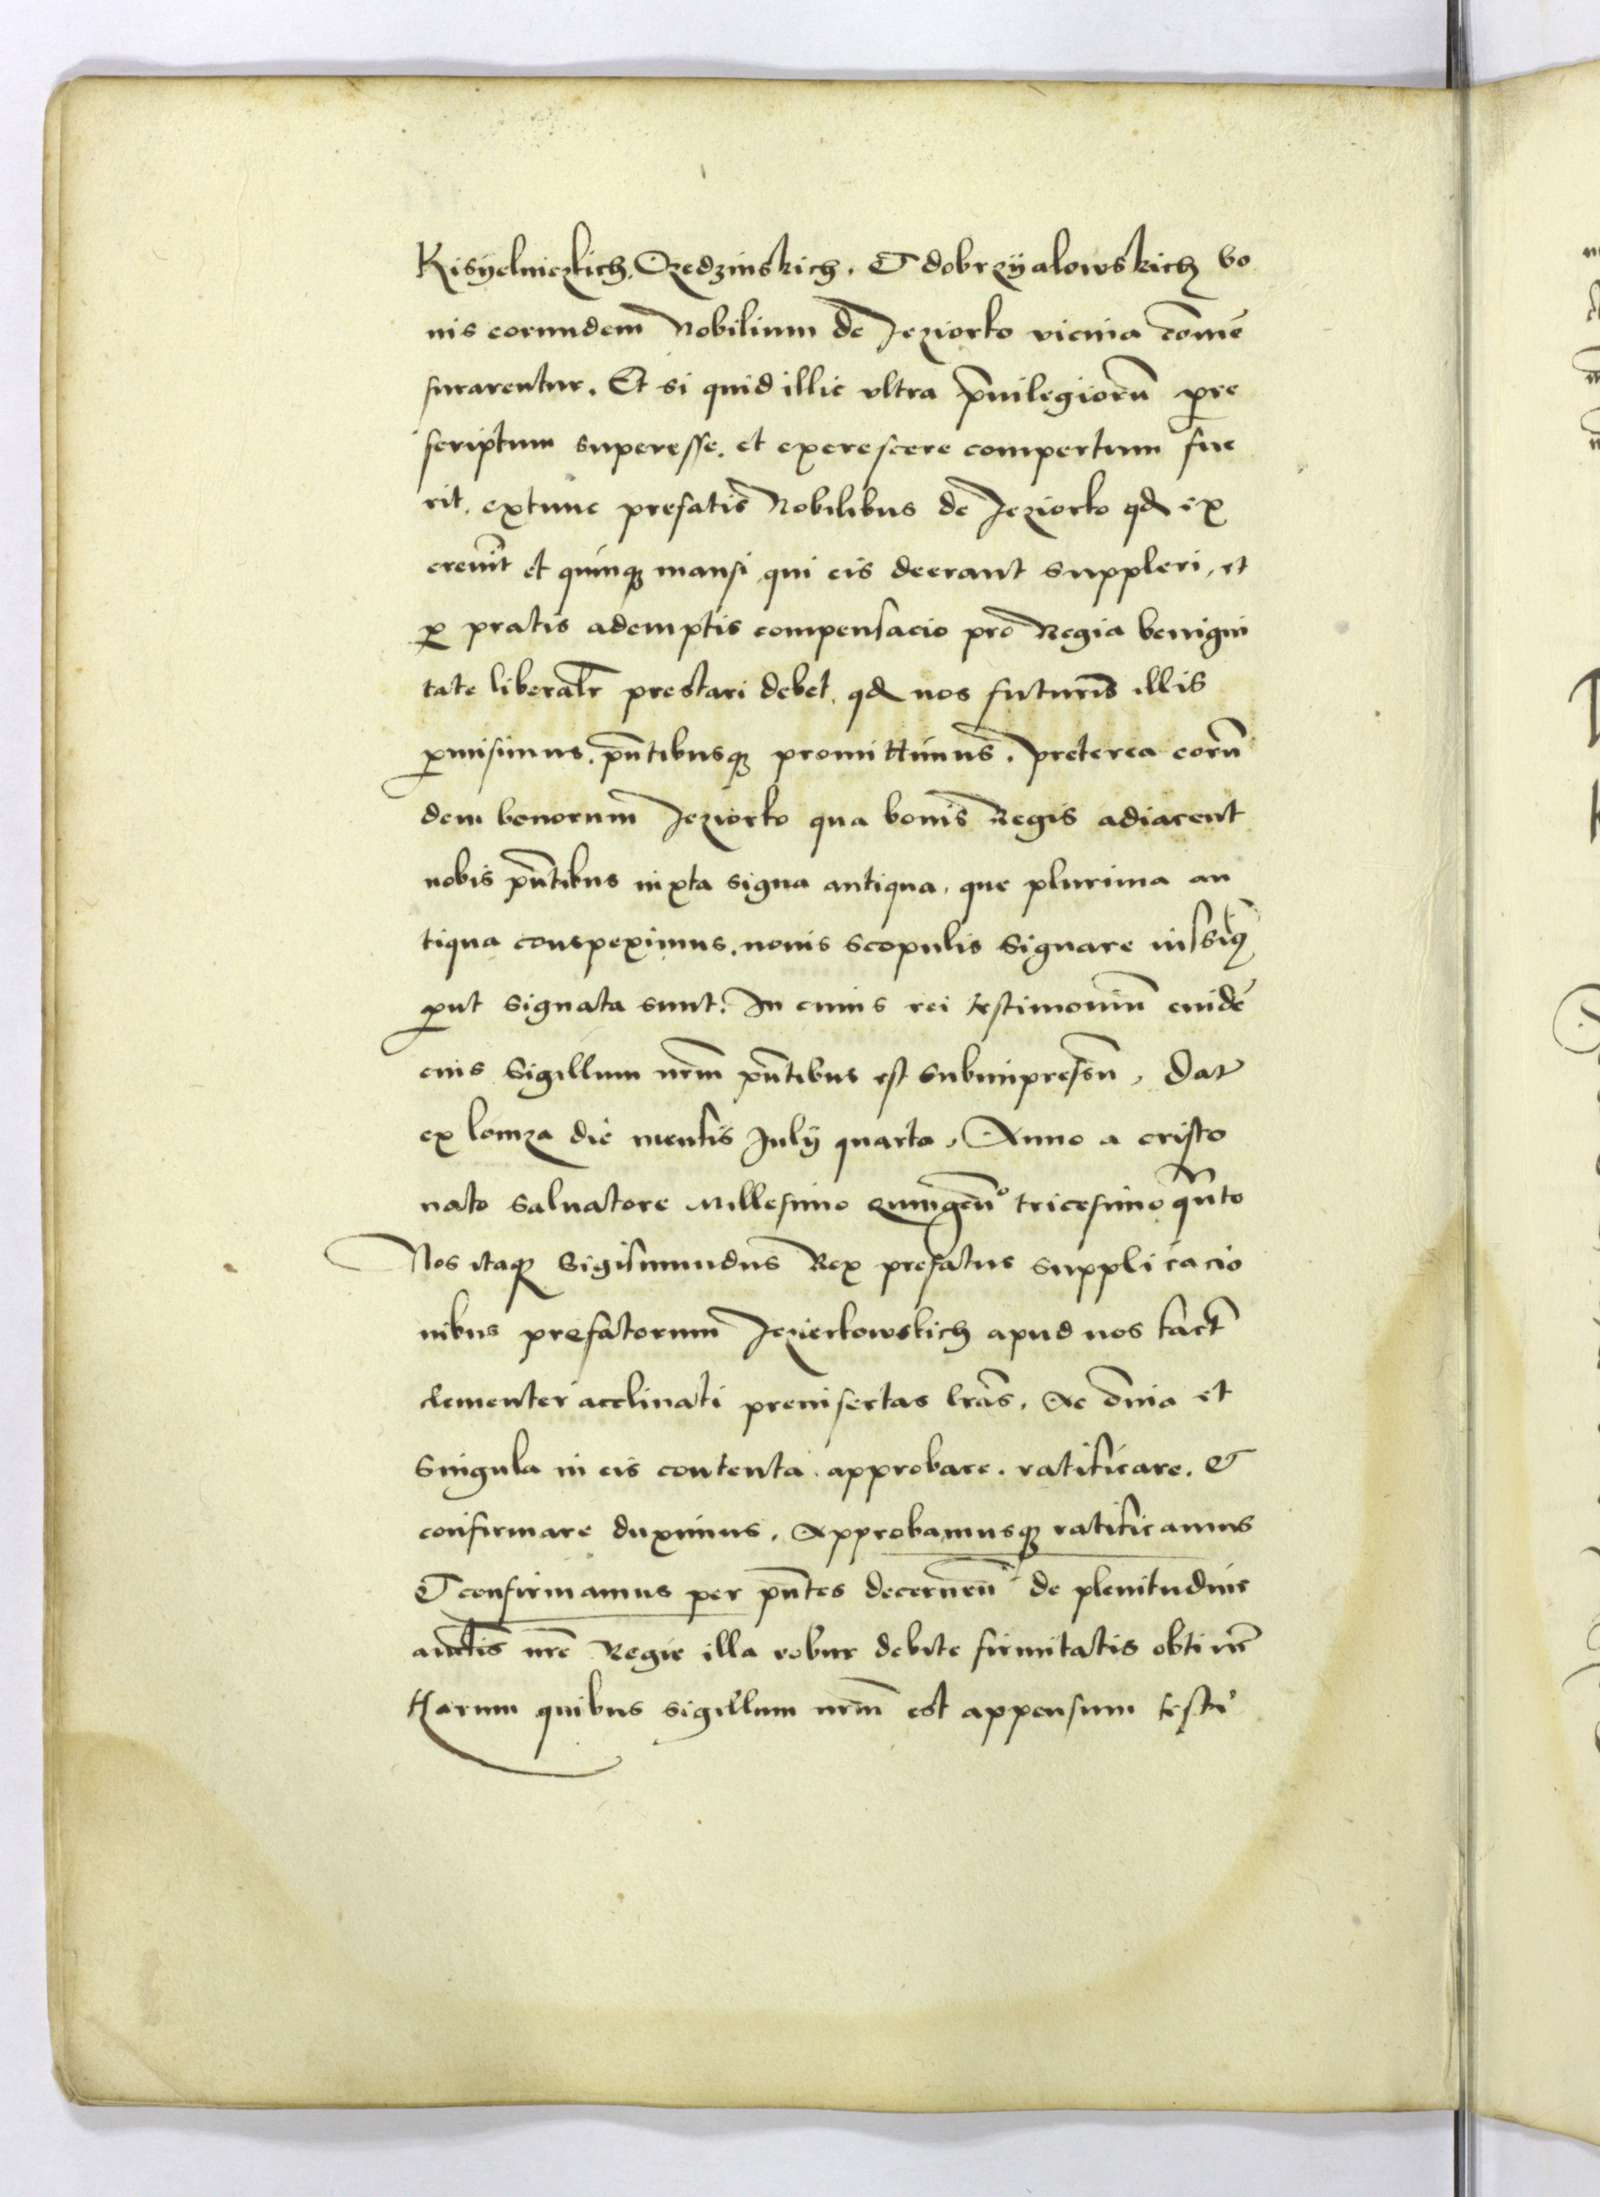 Kisyelniczkich, Ozedzinskich. Et dobrzyalowskich bo
nis eorundem Nobilium de Jeziorko vicinia com̄ē
surarentur. Et si quid illic vltra p̄uilegiorū pre
scriptum superesse. et excrescere compertum fue
rit. extunc prefatis Nobilibus de Jeziorko qd ex
creuit et quinq; mansi qui eis deerant suppleri, et
p pratis ademptis compensacio pro Regia benigni
tate liberalr̄ prestari debet. qd nos futurū illis
pmisimus. pn̄tibusq; promittimus. preterea eorū
dem bonorum Jeziorko qua bonis Regis adiacent
nobis pn̄tibus iuxta signa antiqua, que plurima an
tiqua conspeximus. nouis scopulis signare
put signata sunt. In cuius rei testimoniū euidē
cius Sigillum nr̄m pn̄tibus est subimpressū, Dat
ex lomza die mensis July quarta, Anno a cristo
nato saluatore Millesimo Quingen̄º tricesimo qn̄to
Nos itaq; Sigismundus Rex prefatus supplicacio
nibus prefatorum Jezierkowskich apud nos fact̄
clementer acclinati preinsertas lrās. Ac om̄ia et
singula in eis contenta. approbare. ratificare. Et
confirmare duximus. Approbamusq; ratificamus
Et confirmamus per pn̄tes decernen̄ de plenitudine
auctt̄is nr̄e Regie illa robur debite firmitatis obtinē
Harum quibus sigillum nr̄m est appensum testi